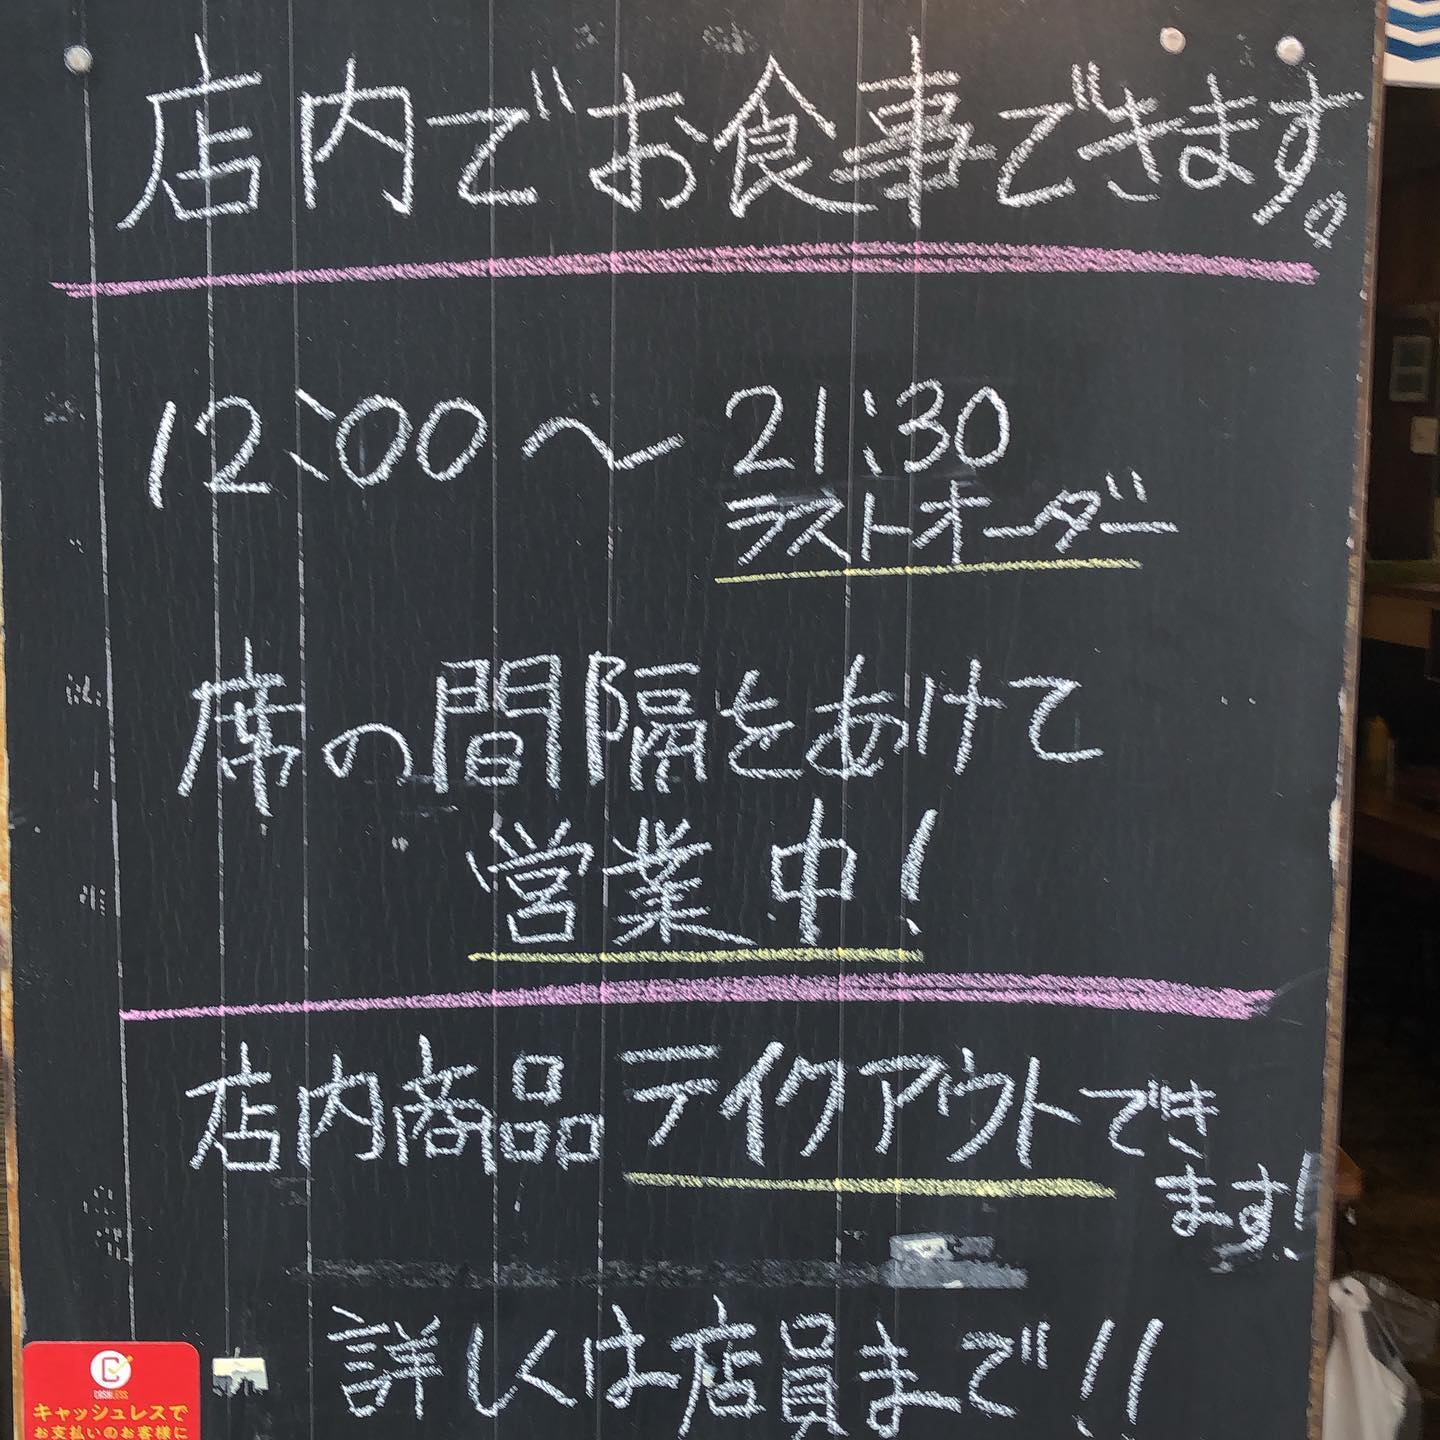 店内でお食事できます。
12:00〜21:30
ラストオーダー
席の間隔をあけて
営業中!
店内商品テイクアウトでき
ます!
詳しくは店員まで!!
CASHLESS
キャッシュレスで
お支払いのお客様に